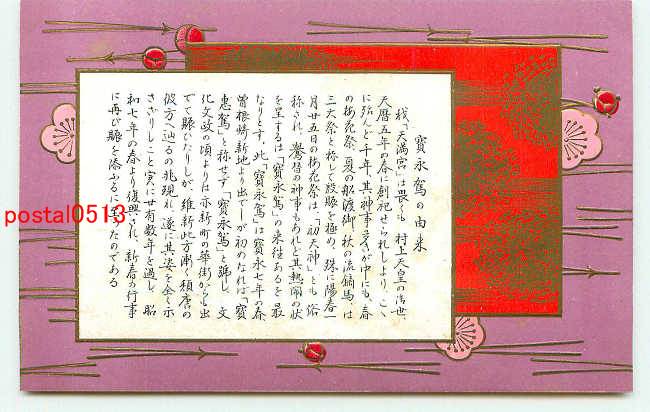 寳永駕の由来
我「天満宮」は畏くも 村上天皇の御世
天暦五年の春に創祀せられしより、こゝ
に殆んど千年、其神事多きが中にも、春
の梅花祭、夏の船渡御、秋の流鏑馬、は
三大祭と称して殷賑を極め、殊に陽春一
月廿五日の梅花祭は、「初天神」とも俗
称され、鷽替の神事もあれど其熱閙の状
を呈するは「寳永駕」の来往あるを最
なりとす、此「寳永駕」は寳永七年の春
曽根崎新地より出でしが初めなれば「寳
恵駕」と称せず「寳永駕」と號し、文
化文政の頃よりは亦新町の華街からも出
でて賑ひたりしが、維新此方漸く頽唐の
彼方へ辿るの兆現れ、遂に其姿を全く示
さざりしこと実に廿有数年を過し、昭
和七年の春より復興され、新春の行事
に再び賑を添ふるに至つたのである
postal0513